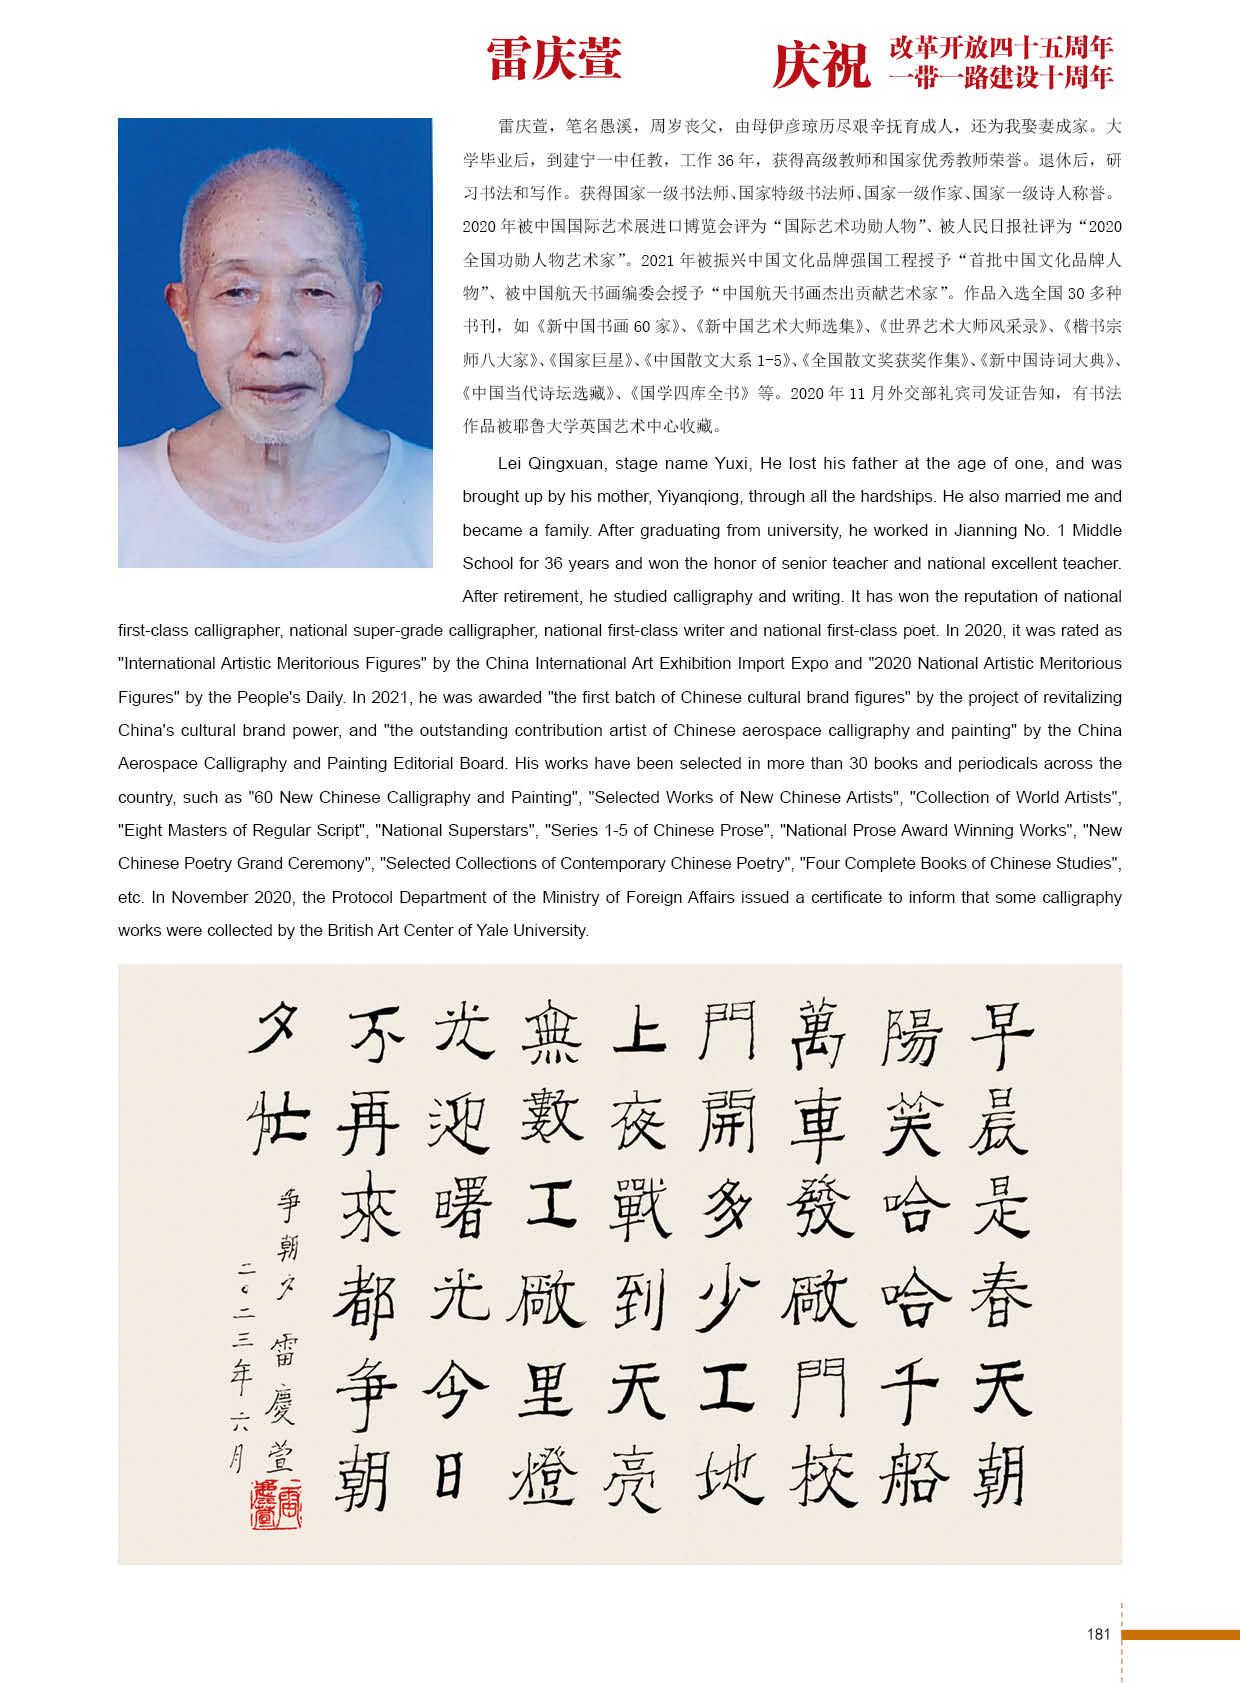 雷庆萱
庆祝
改革开放四十五周年
一带一路建设十周年
雷庆萱，笔名愚溪，周岁丧父，由母伊彦琼历尽艰辛抚育成人，还为我娶妻成家。大
学毕业后，到建宁一中任教，工作 36 年，获得高级教师和国家优秀教师荣誉。退休后，研
习书法和写作。获得国家一级书法师、国家特级书法师、国家一级作家、国家一级诗人称誉。
2020 年被中国国际艺术展进口博览会评为“国际艺术功勋人物”、被人民日报社评为“2020
全国功勋人物艺术家”。2021 年被振兴中国文化品牌强国工程授予“首批中国文化品牌人
物”、被中国航天书画编委会授予“中国航天书画杰出贡献艺术家”。作品入选全国 30 多种
书刊，如《新中国书画 60 家》、《新中国艺术大师选集》、《世界艺术大师风采录》、《楷书宗
师八大家》、《国家巨星》、《中国散文大系 1-5》、《全国散文奖获奖作集》、《新中国诗词大典》、
《中国当代诗坛选藏》、《国学四库全书》等。2020 年 11 月外交部礼宾司发证告知，有书法
作品被耶鲁大学英国艺术中心收藏。
Lei Qingxuan, stage name Yuxi, He lost his father at the age of one, and was
brought up by his mother, Yiyanqiong, through all the hardships. He also married me and
became a family. After graduating from university, he worked in Jianning No. 1 Middle
School for 36 years and won the honor of senior teacher and national excellent teacher.
After retirement, he studied calligraphy and writing. It has won the reputation of national
first-class calligrapher, national super-grade calligrapher, national first-class writer and national first-class poet. In 2020, it was rated as
"International Artistic Meritorious Figures" by the China International Art Exhibition Import Expo and "2020 National Artistic Meritorious
Figures" by the People's Daily. In 2021, he was awarded "the first batch of Chinese cultural brand figures" by the project of revitalizing
China's cultural brand power, and "the outstanding contribution artist of Chinese aerospace calligraphy and painting" by the China
Aerospace Calligraphy and Painting Editorial Board. His works have been selected in more than 30 books and periodicals across the
country, such as "60 New Chinese Calligraphy and Painting", "Selected Works of New Chinese Artists", "Collection of World Artists",
"Eight Masters of Regular Script", "National Superstars", "Series 1-5 of Chinese Prose", "National Prose Award Winning Works", "New
Chinese Poetry Grand Ceremony", "Selected Collections of Contemporary Chinese Poetry", "Four Complete Books of Chinese Studies",
etc. In November 2020, the Protocol Department of the Ministry of Foreign Affairs issued a certificate to inform that some calligraphy
works were collected by the British Art Center of Yale University.
早晨是春天朝
陽笑哈哈千船
萬車發廠門校
門開多少工地
上夜戰到天亮
無數工廠里燈
光迎曙光今日
不再來都争朝
夕忙
争朝夕 雷慶萱
二〇二三年六月
雷慶萱
181